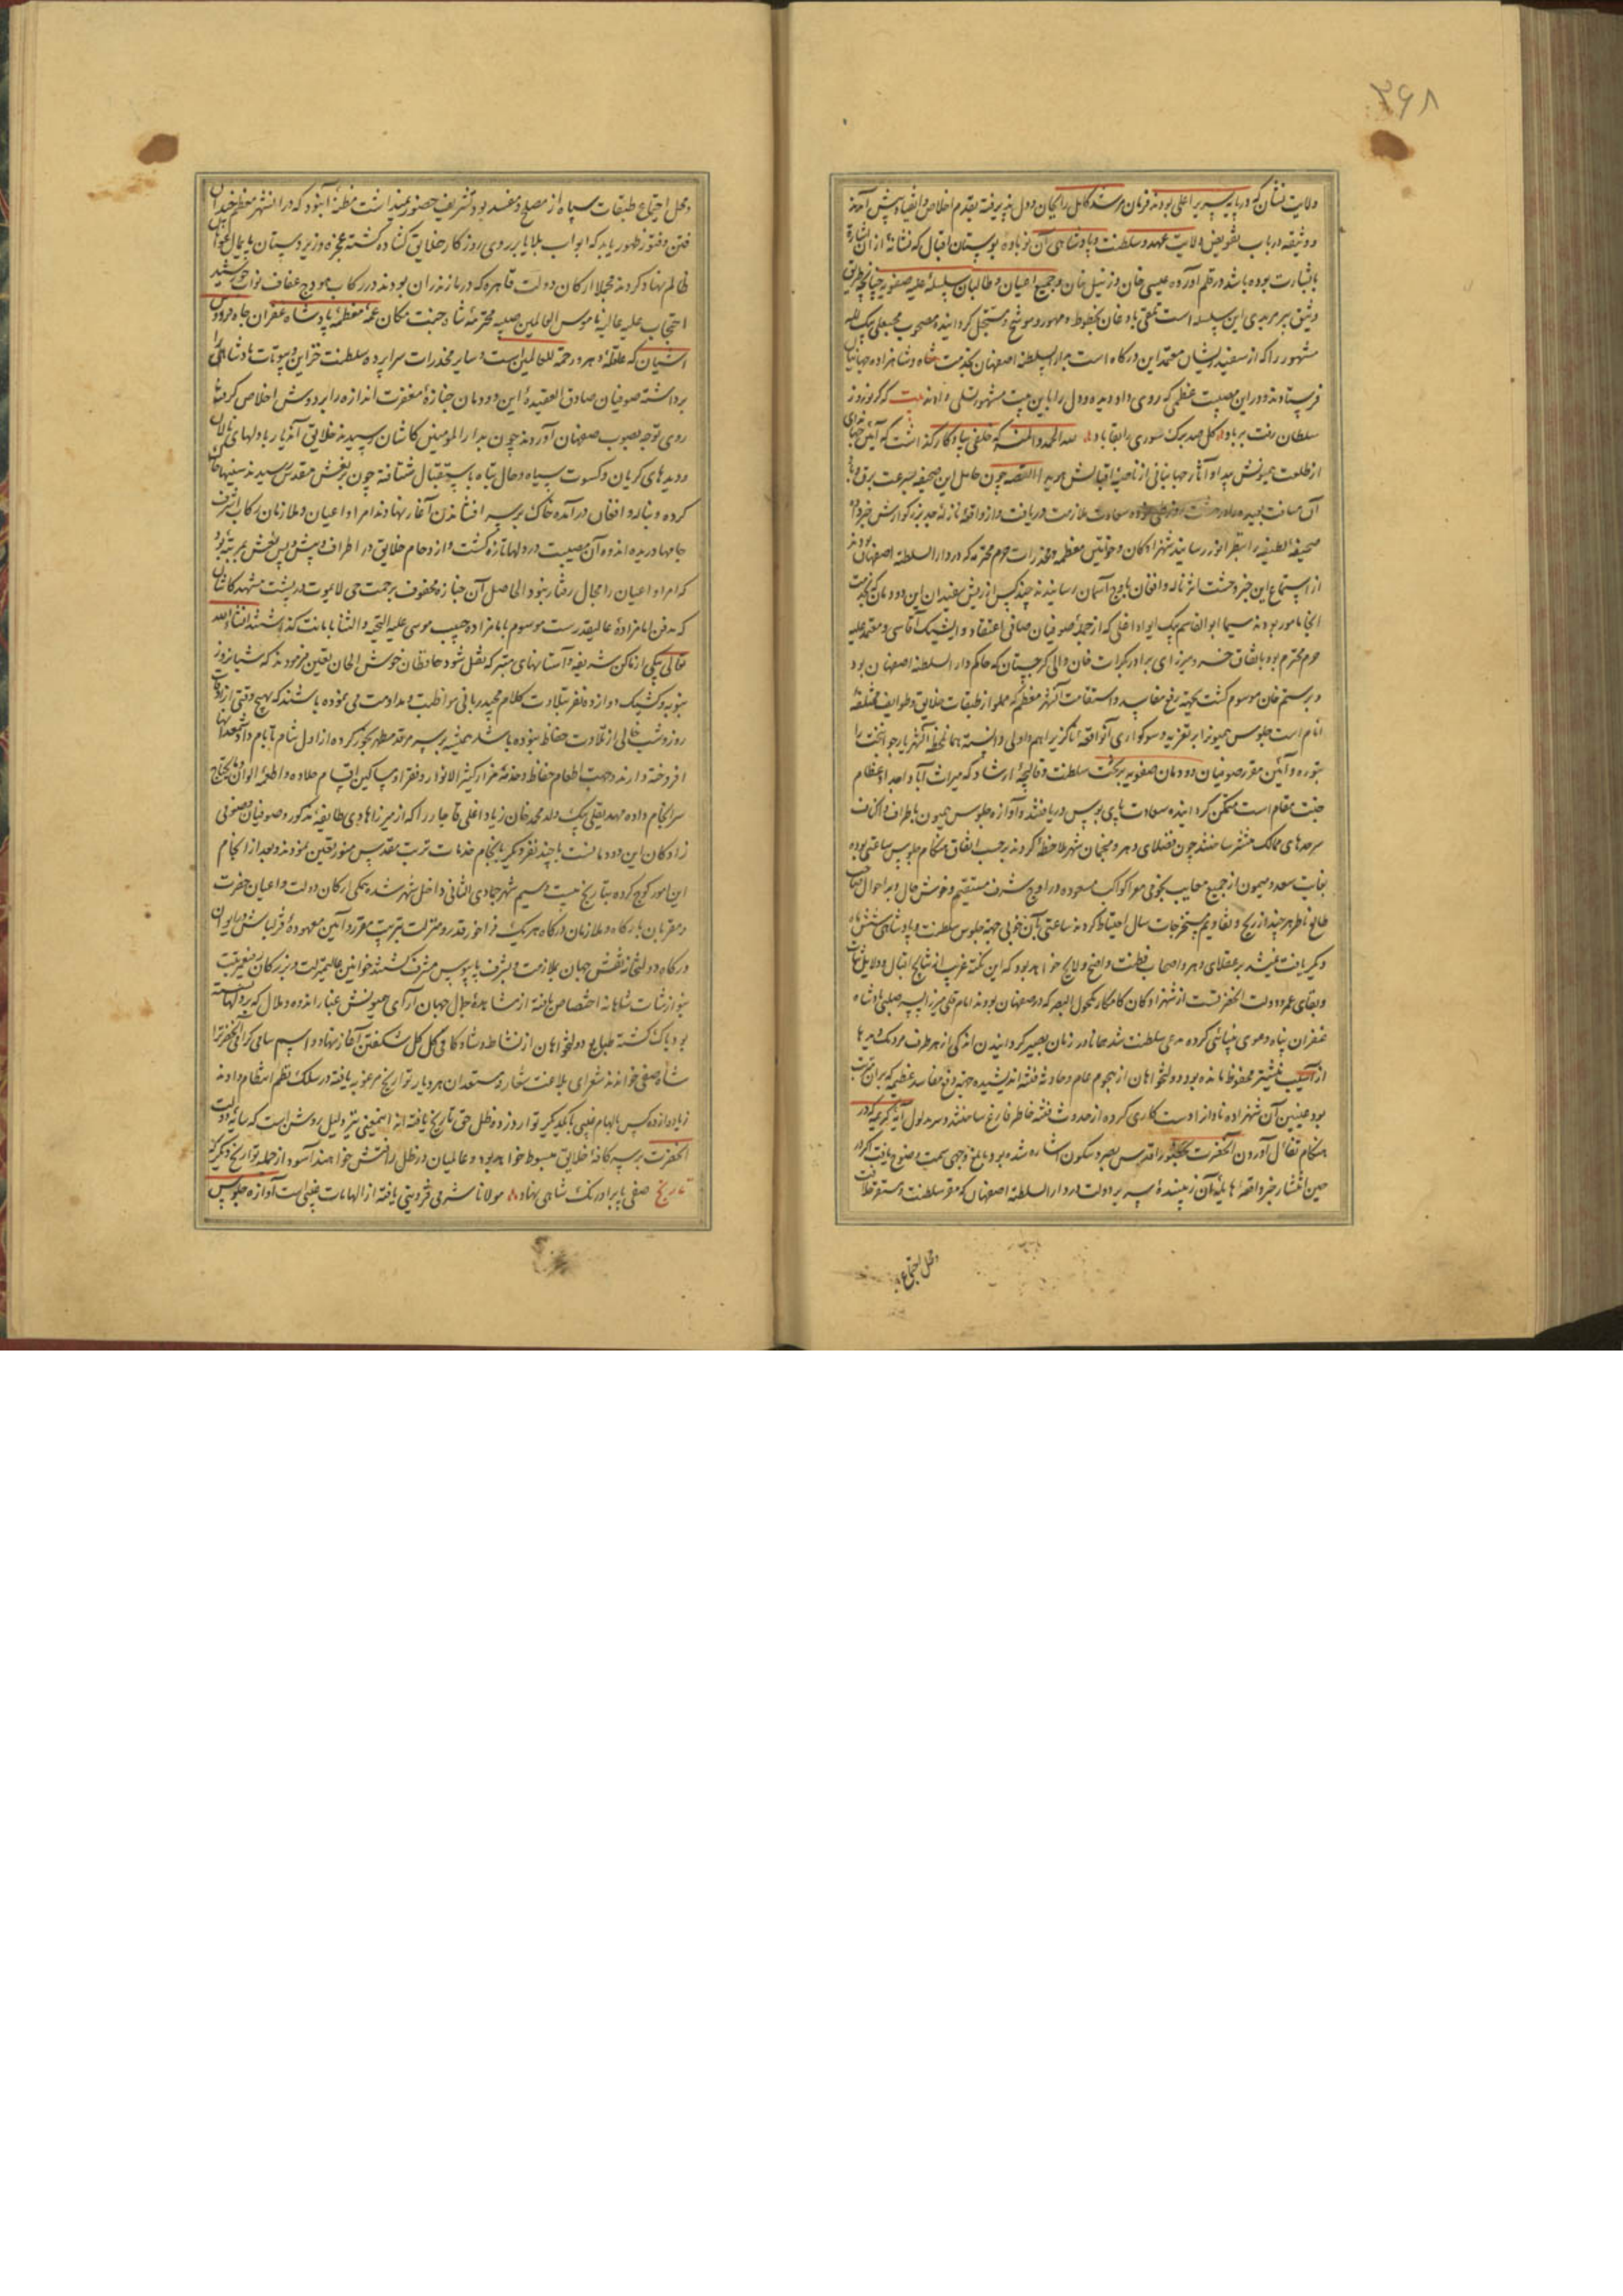 ۳۶۸
ولایت نشان که در پایه سریر اعلی بودند فرمان مرشد کامل را بجان و دل پذیرفته بقدم اخلاص و انقیاد پیش آمدند
و وثیقه در باب تفویض ولایت عهد و سلطنت و پادشاهی آن نوباوه بوستان اقبال که نشانه از آن اشارة
با بشارت بوده باشد در قلم آورده عیسی خان و زینل خان و جمیع اعیان و طالبان سلسله علیه صفویه چنانچه طریق
وثیق پیر مریدی این سلسله است بخطوط و مهور موشح و مسجل گردانیده مصحوب محبعلی بیک
مشهور را که از سفید ریشان معتمد این درگاه است بدار السلطنه اصفهان بخدمت شاه و شاهزاده جهانیان
فرستادند و در این مصیبت عظمی که روی داد دیده و دل را باین بیت مشهور تسلی دادند بیت که گر نوروز
سلطان رفت بر باد گل صد برک سوری را بقا باد لله الحمد و المنه که خلفی بیادگار گذاشت که آیین جهانبانی
از طلعت همیونش پیدا و آثار جهانبانی از ناصیه اقبالش هویدا القصه چون حامل این صحیفه بسرعت برق و باد
آن مسافت بعیده را در سعادت ملازمت دریافت و از واقعه نازله جد بزرگوارش خبر داد
صحیفه لطیفه را بنظر انور رسانید شهزادگان و خواتین معظمه و مخدرات حرم محترم که در دار السلطنه اصفهان بودند
از استماع این خبر وحشت اثر ناله و افغان باوج آسمان رسانیدند چند کس از ریش سفیدان این دودمان که بخدمت
آنجا مامور بودند سیما ابوالقاسم بیک ایواوغلی که از جمله صوفیان صافی اعتقاد و ایشیک آقاسی و معتمد علیه
حرم محترم بود باتفاق خسرو میرزای برادر بکرات خان والی گرجستان که حاکم دار السلطنه اصفهان بود
و برستم خان موسوم گشت بجهة رفع مفاسد و استقامت آن شهر معظم که مملو از طبقات خلایق و طوایف مختلفه
انام است جلوس همیون را بر تعزیه و سوگواری آن واقعه ناگزیر اهم و اولی دانسته همان لحظه آن شهریار جوانبخت را
بتوره و آئین مقرر صوفیان دودمان صفویه بر تخت سلطنت و قالیچه ارشاد که میراث آبا و اجداد عظام
جنت مقام است متمکن گردانیده سعادت پای بوس دریافتند و آوازه جلوس همیون باطراف و اکناف
سرحدهای ممالک منتشر ساختند چون فضلای دهر و منجمان شهر ملاحظه کردند بر حسب اتفاق هنگام جلوس ساعتی بوده
بغایت سعد و میمون از جمیع معایب نجومی معرا کواکب مسعوده در اوج شرف مستقیم و خوش حال و بر احوال
طالع ناظر هر چند از زیج و تقاویم مستخرجات سال احتیاط کردند ساعتی بآن خوبی جهة جلوس سلطنت و پادشاهی شش ماه
دیگر یافت نمیشد بر عقلای دهر و اصحاب فطنت واضح و لایح خواهد بود که این نکته غریب از نتایج اقبال و دلایل ثبات
و بقای عمر و دولت آنحضرتست از شهزادگان کامکار مکحول البصر که در صفهان بودند امام قلی میرزا پسر صلبی پادشاه
غفران پناه دعوی بینائی کرده مدعی سلطنت شد همانا در زمان بصیر گردانیدن اندکی از هر طرف مردمک دیدها
از آسیب نیشتر محفوظ مانده بود دولتخواهان از هجوم عام و حادثه فتنه اندیشیده جهة دفع مفاسد عظیمه که بر آن مترتب
بود عینین آن شهزاده نادان را دست کاری کرده از حدوث فتنه خاطر فارغ ساختند و سر مدلول آیه کریمه که در
هنگام تفأل آوردن آنحضرت بصبر و سکون اشاره شده بود بابلغ وجهی سمت وضوح یافت اگر در
حین انتشار خبر واقعه هایله آن زیبنده سریر دولت در دار السلطنه اصفهان که مقر سلطنت و مستقر خلافت
و محل اجتماع
و محل اجتماع طبقات سپاه از مصلح و مفسد بود تشریف حضور نمیداشت مظنه آن بود که در آن شهر معظم خدای نخواسته
فتن و فتور ظهور یابد که ابواب بلایا بر روی روزگار خلایق گشاده گشته عجزه و زیردستان پایمال
ظالم نهاد گردند مجملا ارکان دولت قاهره که در مازندران بودند در رکاب هودج عفاف نواب خورشید
احتجاب علیه عالیه ناموس العالمین صبیه محترمه شاه جنت مکان عمه معظمه پادشاه غفران جاه فردوس
آشیان که علقه دهر و رحمة للعالمین است و سایر مخدرات سراپرده سلطنت خزاین و بیوتات پادشاهی را
برداشته صوفیان صادق العقیده این دودمان جنازه مغفرت اندازه را بر دوش اخلاص گرفته
روی توجه بصوب صفهان آوردند چون بدار المومنین کاشان رسیدند خلایق آن دیار با دلهای نالان
و دیدهای گریان و کسوت سیاه و حال تباه باستقبال شتافته چون بنعش مقدس رسیدند سینها چاک
کرده و بناله و افغان در آمده خاک بر سر افشاندن آغاز نهادند امرا و اعیان و ملازمان رکاب اشرف
جامها دریده اندوه آن مصیبت در دلها تازه گشت و ازدحام خلایق در اطراف و پیش و پس نعش بمرتبه بود
که امرا و اعیان را مجال رفتار نبود الحاصل آن جنازه محفوف برحمت حی لایموت در پشت مشهد کاشان
که مدفن امامزاده عالیقدرست موسوم بامامزاده حبیب موسی علیه التحیه و الثنا بامانت گذاشتند انشاء الله
تعالی بیکی از اماکن شریفه و آستانهای متبرکه نقل شود حافظان خوش الحان تعیین فرمودند که شبانروز
بنوبه و کشیک دوازده نفر بتلاوت کلام مجید ربانی مواظبت و مداومت می نموده باشند که هیچ وقتی از اوقات
روز و شب خالی از تلاوت حفاظ نبوده باشد همیشه بر سر مرقد مطهر بخور کرده از اول شام تا بام داد شمعها
افروخته دارند و جهت اطعام حفاظ و خدمه مزار کثیر الانوار و فقرا و مساکین اقسام حلاوه و اطعمه الوان و مایحتاج
سرانجام داده مهدیقلی بیک ولد محمد خان زیاد اغلی قاجار را که از میرزاهای طایفه مذکور و صوفیان و صوفی
زادگان این دودمانست با چند نفر دیگر بانجام خدمات تربت مقدس منور تعیین نمودند و بعد از انجام
این امور کوچ کرده بتاریخ بیست و سیم شهر جمادی الثانی داخل شهر شده یکی ارکان دولت و اعیان حضرت
و مقربان بارگاه و ملازمان درگاه هر یک فراخور قدر و منزلت بترتیب مقرر و آئین معهوده قزلباش در ایوان
درگاه دولتخانه نقش جهان بملازمت و بشرف پابوس مشرف گشتند خوانین عالیمنزلت و بزرگان رفیع مرتبت
بنوازشات شاهانه اختصاص یافته از مشاهده جمال جهان آرای همیونش غبار اندوه و ملال که بر دلها نشسته
بود پاک گشته طبایع دولتخواهان از نشاط و شادکامی گل گل شکفتن آغاز نهاد و اسم سامی گرامی آنحضرت را
شاه صفی خواندند شعرای بلاغت شعار و مستعدان هر دیار تواریخ مرغوبه یافته در سلک نظم انتظام دادند
زیاد از ده کس بالهام غیبی یکدیگر توارد زده و ظل حق تاریخ یافته اند اینمعنی نیز دلیل روشن است که سایه دولت
آنحضرت بر سر کافه خلایق مبسوط خواهد بود و عالمیان در ظل رافتش خواهند آسود از جمله تواریخ دیگر که
تاریخ صفی پا بر اورنک شاهی نهاد مولانا شرمی قزوینی یافته از الهامات غیبی است آوازه جلوس